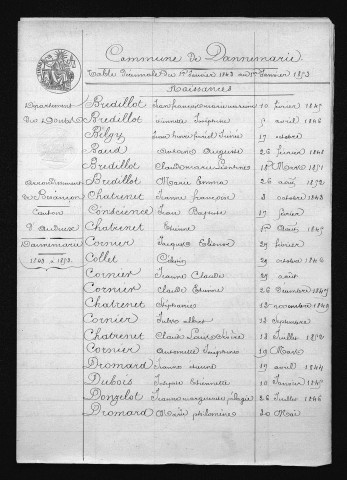 Commune de Dannemarie
Table Décennale du 1er Janvier 1843 au 1er Janvier 1853
Naissances
Département
du Doubs
Arrondissement
de Besançon
Canton
d'Audeux
Dannemarie
1843 à 1853
Bredillot 10 février 1845
Bredillot avril 1846
Belgy 17 octobre
Baud Auguste 26 février 1848
Bredillot Claude 18 Mars 1851
Bredillot Marie Emma 26 août 1852
Chatrenet Jeanne françoise 3 octobre 1843
Conscience Jean Baptiste 17 février
Chatrenet Etienne 1er Août 1845
Cornier Jacques Etienne 29 février
Collet 29 octobre 1846
Cornier Jeanne Claude 25 août
Cornier Claude Etienne 26 Décembre 1847
Chatrenet Stéphanie 13 novembre 1849
Cornier Jules albert 12 Septembre
Chatrenet Claude Louis 13 Juillet 1852
Cornier Antoinette Joséphine 19 Mars
Dromard Jeanne 19 avril 1844
Dubois Etiennette 10 Janvier 1845
Dongelot Jeanne marguerite pélagie 26 Juillet 1846
Dromard Marie philomène 30 Mai